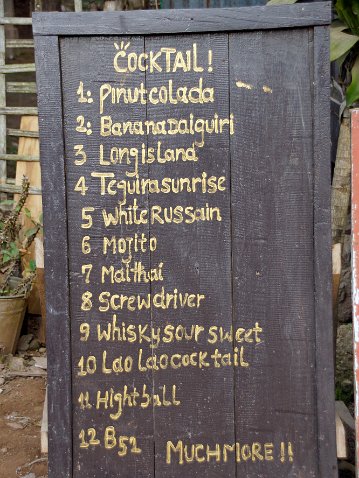 COCKTAIL!
1: Pinutcolada
2: BananaDaiguiri
3 Longisland
4 Teguirasunrise
5 WhiteRussain
6 Mojito
7 Maithai
8 Screwdriver
9 Whiskysour sweet
10 Lao Lao cocktail
11 Hightball
12 B52
MUCHMORE!!